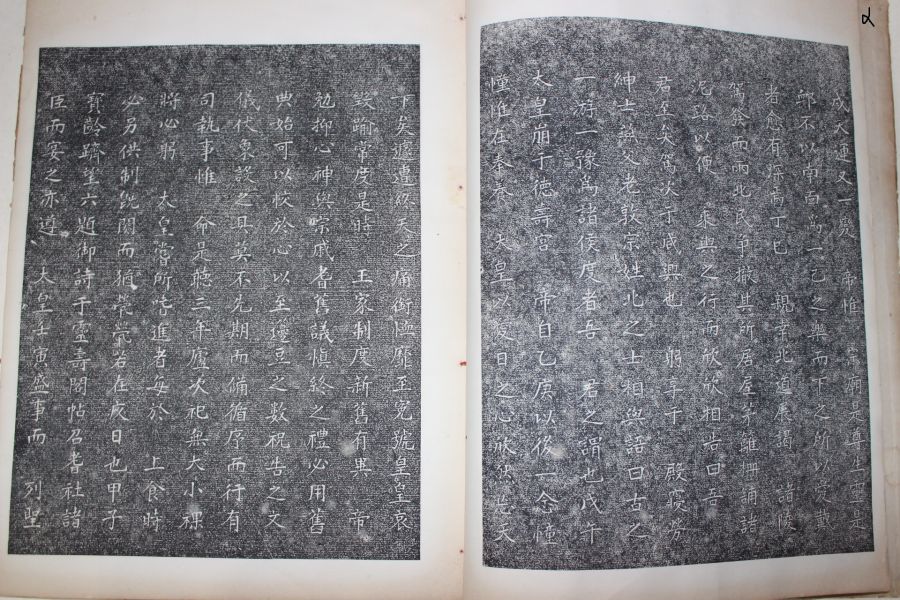 成大運又一變 帝惟 痛哀尊 生靈是
卹不以南面爲一己之樂而下之所以愛戴
者愈有 丁巳 親幸北道展謁 諸陵
駕翕而雨北民爭撤其所居屋茅雜 誦諸
沱路以便 乘輿之行而欣欣相告曰吾
君至矣駕次于咸興也 躬享于 殿寢勞
紳士與父老敦宗姓北之士相與語曰古之
一游一豫爲諸侯度者吾 君之謂也戊午
太皇崩于德壽宮 帝自乙庚以後一念憧
憧惟在奉養 太皇以愛日之心 然 天
下矣遽遭終天之痛銜恤靡至冤號皇皇哀
毀踰常度是時 王家制度新舊有異 帝
勉抑心神與宗戚耆舊議愼終之禮必用舊
典始可以校於心以至邊豆之數祝告之文
儀仗象設之具莫不先期而備循序而行有
司執事惟 命是聽三年廬次祀無大小祼
將心躬 太皇嘗所嗜進者每於 上食時
必另供制旣闋而猶煢煢若在疚日也甲子
寶齡躋望六題御詩于靈壽閣帖召耆社諸
臣而宴之亦導 太皇壬寅盛事而 列聖